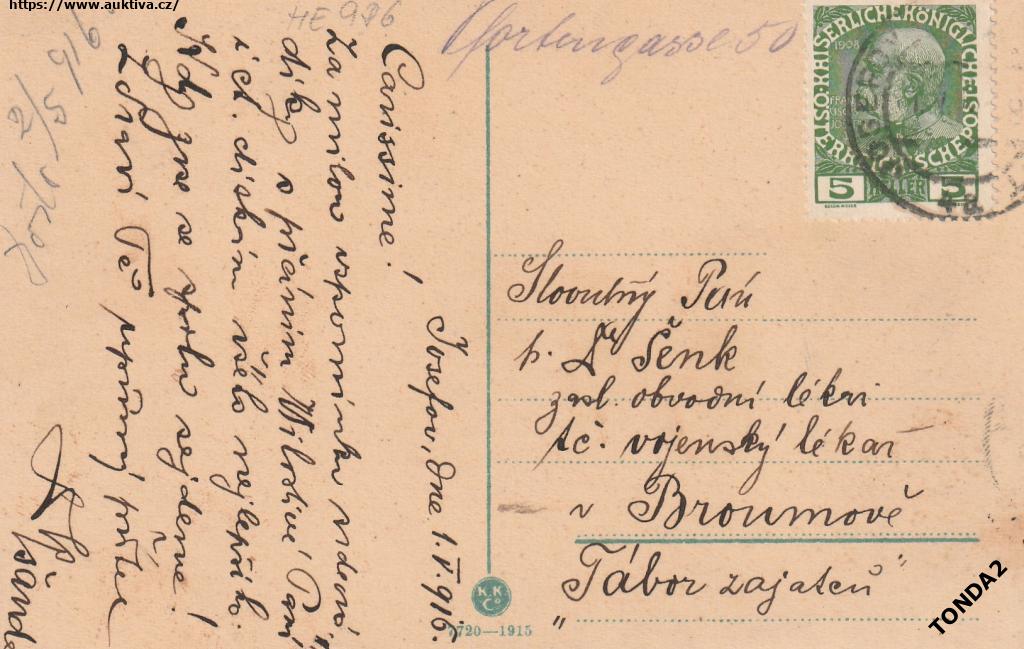 https://www.auktiva.cz/
HE 976
Carissime!
Za milou vzpomínku srdečné
díky s přáním Milostivé Paní
i ct. dítkám všeho nejlepšího.
Kdy zse se spolu sejdeme!
Zdraví Tě upřímný přítel
Josefov, dne 1.V.916.
Gartengasse 50
KAISERLICHE KÖNIGLICHE ÖSTERREICHISCHE POST
1908
FRANZ
5 HELLER 5
Slovutný Pan
p. Dr Šenk
zasl. obvodní lékař
tč. vojenský lékař
v Broumově
"Tábor zajatců"
K.K. Co
7720—1915
TONDA2